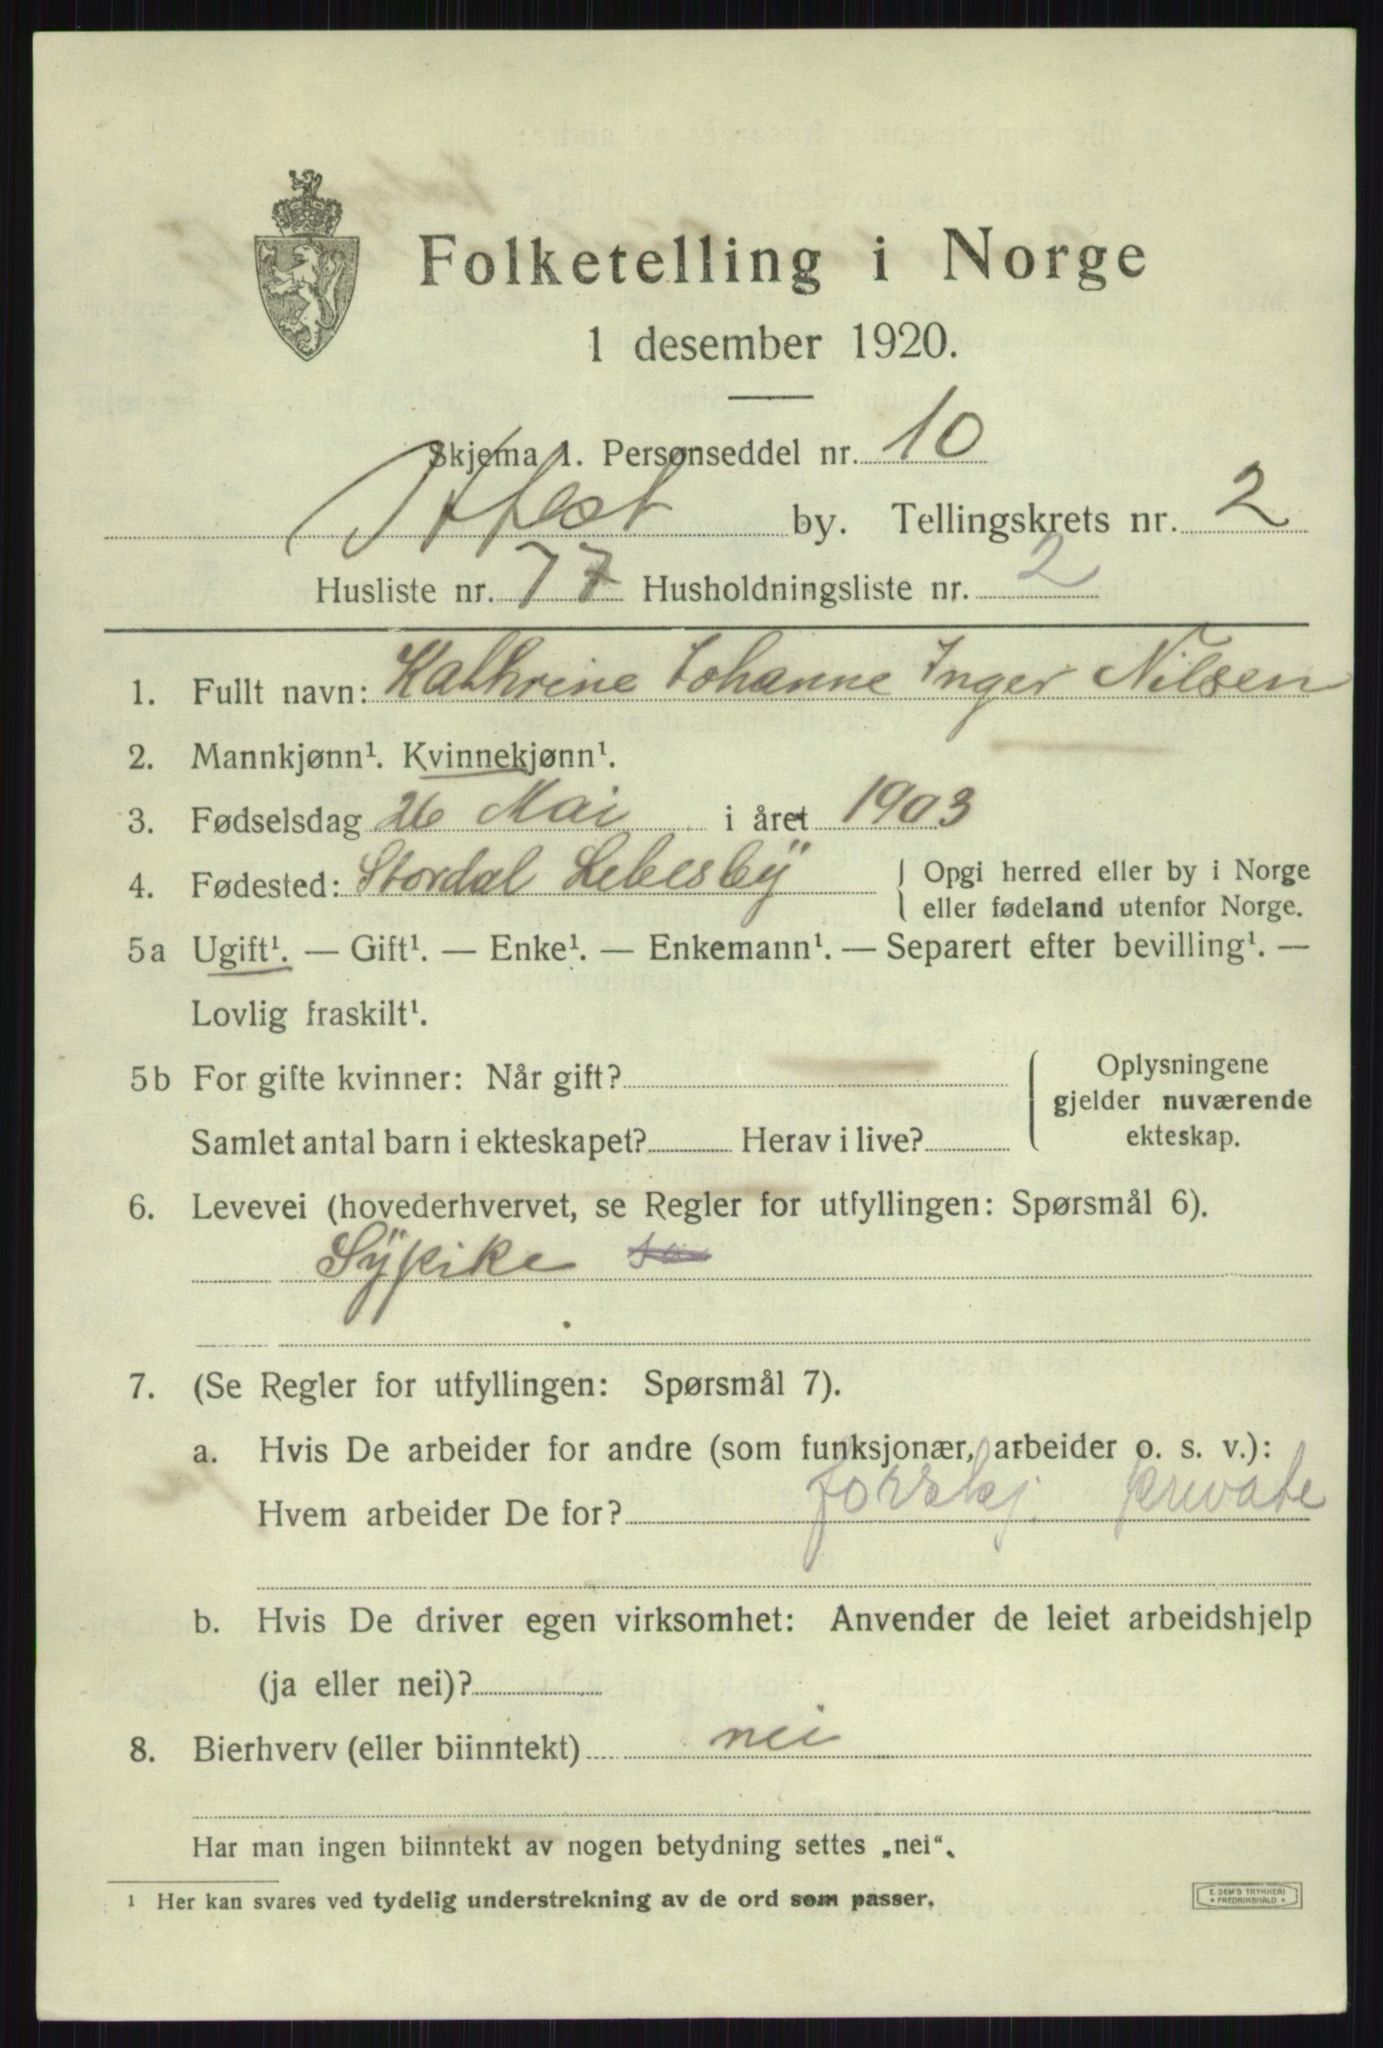 Folketelling i Norge
1 desember 1920.
Skjema 1. Personseddel nr. 10
H.fest by. Tellingskrets nr. 2
Husliste nr. 77 Husholdningsliste nr. 2
1. Fullt navn: Kathrine Johanne Inger Nilsen
2. Mannkjønn¹. Kvinnekjønn¹.
3. Fødselsdag 26 Mai i året 1903
4. Fødested: Stordal Lebesby { Opgi herred eller by i Norge
eller fødeland utenfor Norge.
5a Ugift¹. — Gift¹. — Enke¹. — Enkemann¹. — Separert efter bevilling¹. —
Lovlig fraskilt¹.
5b For gifte kvinner: Når gift? { Oplysningene
gjelder nuværende
Samlet antal barn i ekteskapet? Herav i live? ekteskap.
6. Levevei (hovederhvervet, se Regler for utfyllingen: Spørsmål 6).
Sÿpike
7. (Se Regler for utfyllingen: Spørsmål 7).
a. Hvis De arbeider for andre (som funksjonær, arbeider o. s. v.):
Hvem arbeider De for? forskj. private
b. Hvis De driver egen virksomhet: Anvender de leiet arbeidshjelp
(ja eller nei)?
8. Bierhverv (eller biinntekt) nei
Har man ingen biinntekt av nogen betydning settes „nei“.
¹ Her kan svares ved tydelig understrekning av de ord som passer.
E. SEM'S TRYKKERI
• FREDRIKSHALD •